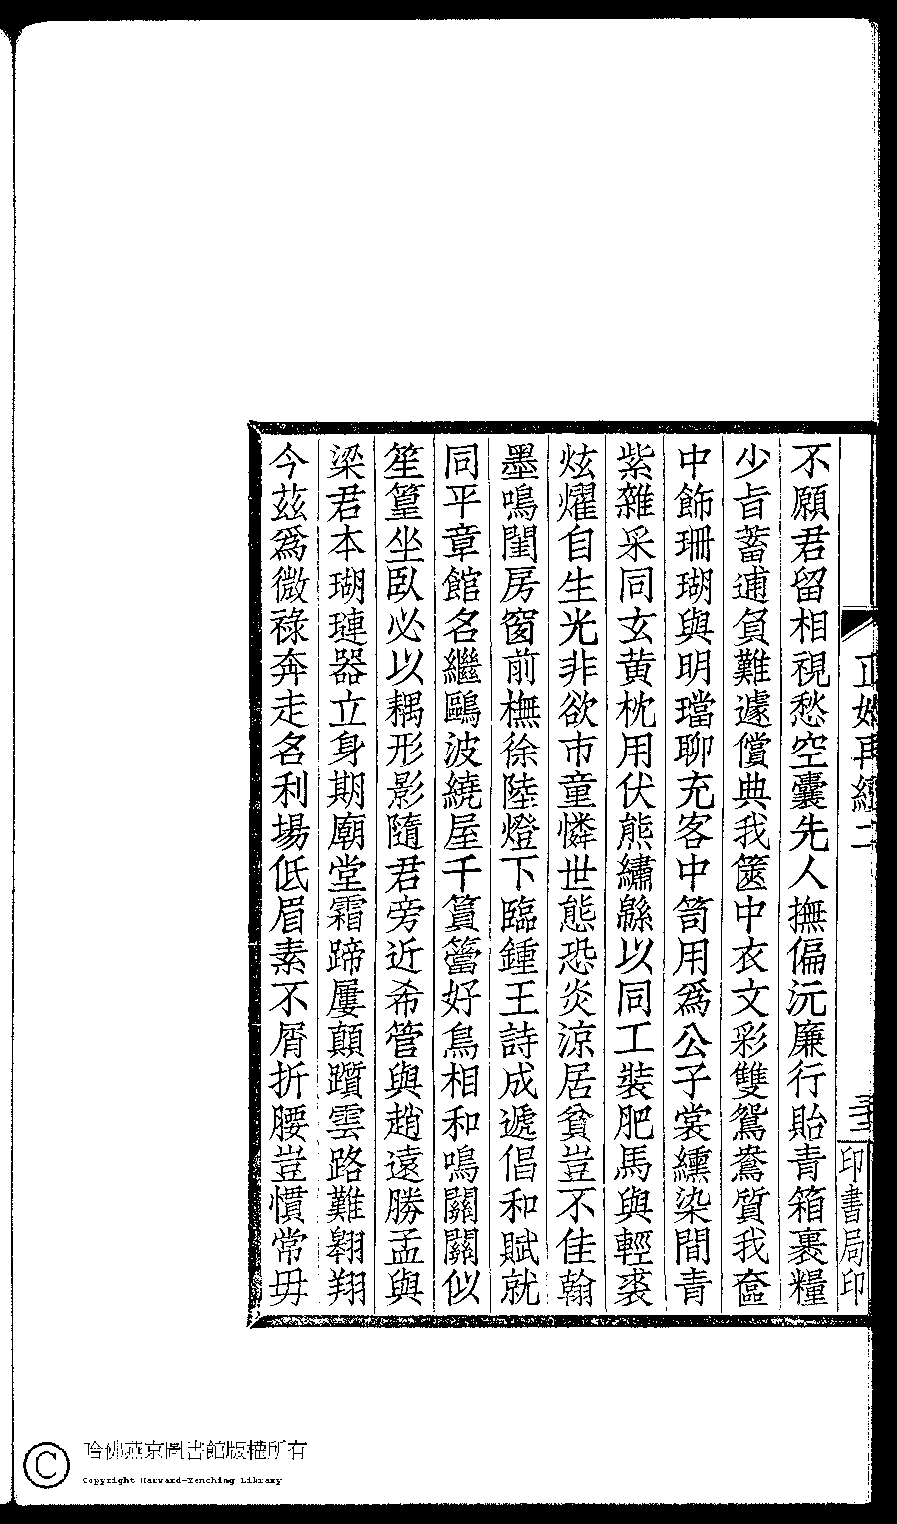 不願君留相視愁空囊先人撫偏沅廉行貽青箱裹糧
少旨蓄逋負難遽償典我篋中衣文彩雙鴛鴦質我奩
中飾珊瑚與明璫聊充客中笥用爲公子裳纁染間青
紫雜采同玄黃枕用伏熊繡緜以同工裝肥馬與輕裘
炫燿自生光非欲市童憐世態恐炎涼居貧豈不佳翰
墨鳴閨房窗前橅徐陸燈下臨鍾王詩成遞倡和賦就
同平章館名繼鷗波繞屋千篔簹好鳥相和鳴關關似
笙篁坐臥必以耦形影隨君旁近希管與趙遠勝孟與
梁君本瑚璉器立身期廟堂霜蹄屢顛躓雲路難翱翔
今茲爲微祿奔走名利場低眉素不屑折腰豈慣常毋
再續二
三十二
印書局印
哈佛燕京圖書館版權所有
Copyright Harvard-Yenching Library